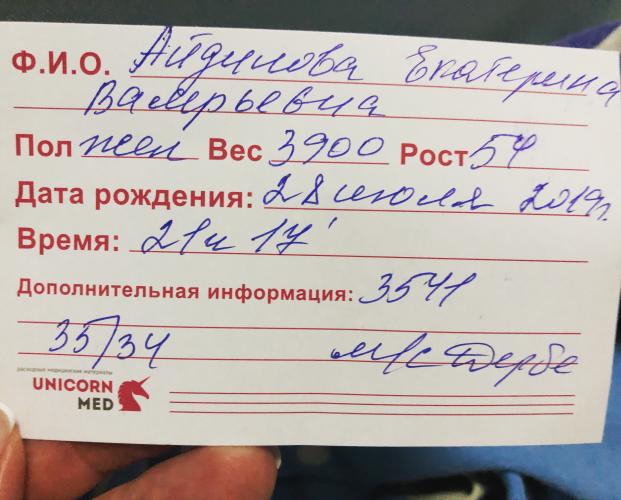 Ф.И.О. Айдинова Екатерина
Валерьевна
Пол жен Вес 3900 Рост 54
Дата рождения: 28 июля 2019г.
Время: 21ч 17'
Дополнительная информация: 3541
35/34 м/с Дербе
расходные медицинские материалы
UNICORN
MED